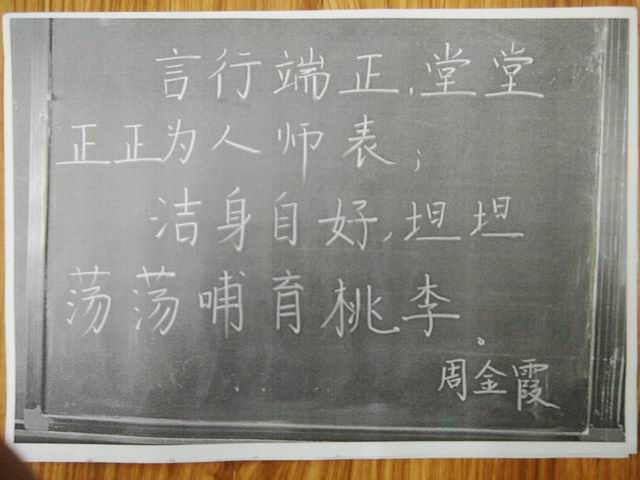 言行端正,堂堂
正正为人师表;
洁身自好,坦坦
荡荡哺育桃李。
周金霞